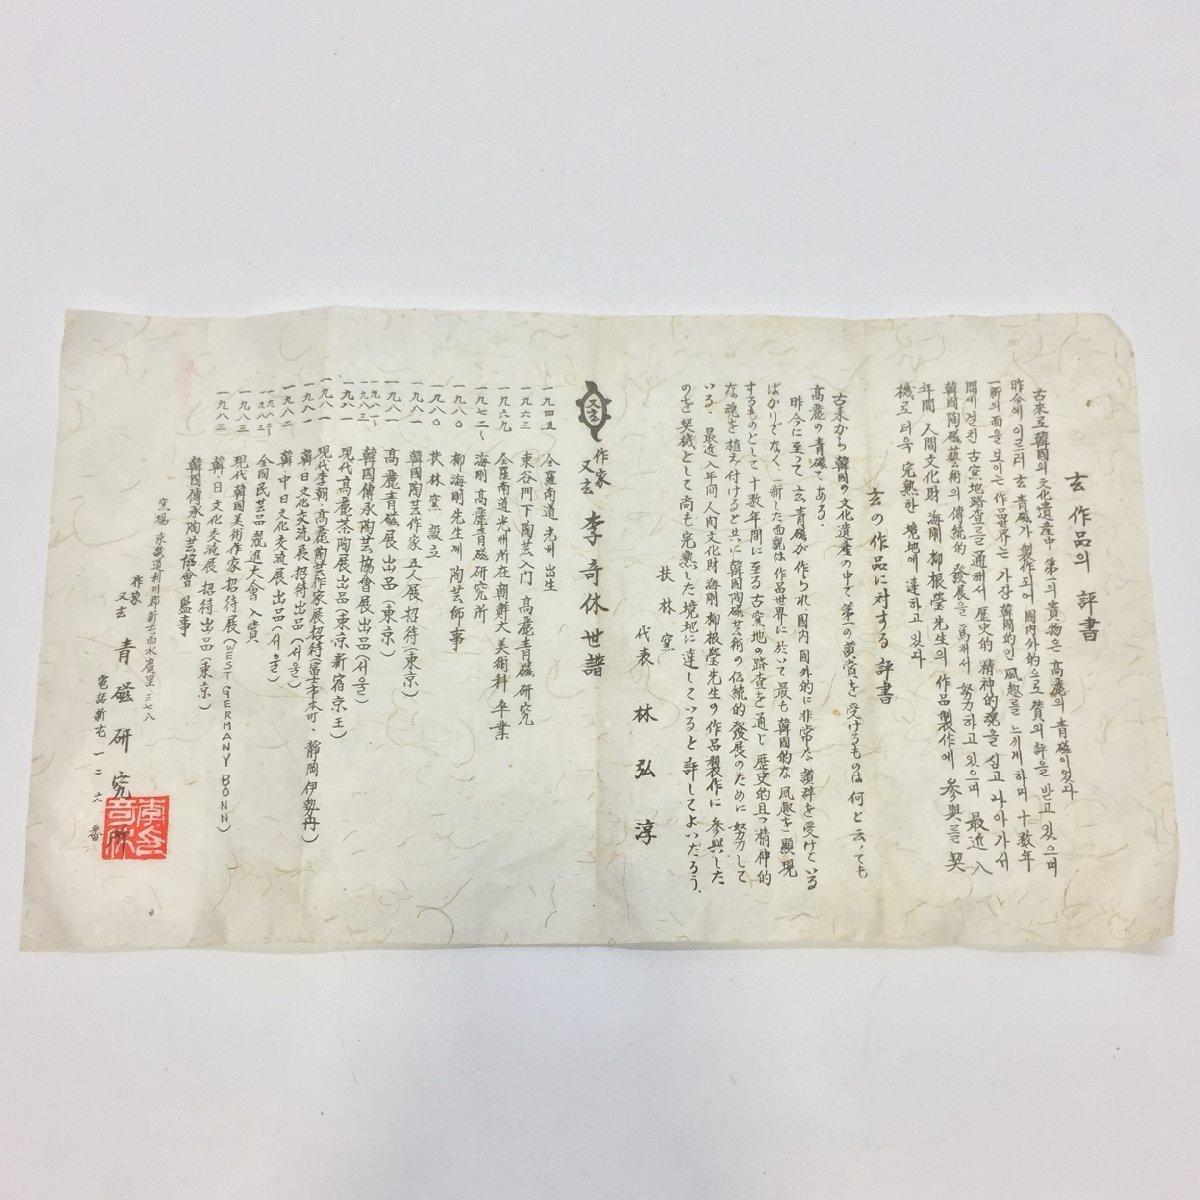 玄 作品의 評書
古来로 韓國의 文化遺産中 第一의 貴物은 高麗의 青磁이었다
昨今에 이르러 玄 青磁가 製作되어 國内外的으로 賛의 評을 받고 있으며
一新의 面을 보이는 作品世界는 가장 韓國的인 風趣를 느끼게 하며 十数年
間에 걸친 古窯地踏査를 通해서 歴史的 精神的 魂을 심고 나아가서
韓國陶磁藝術의 傳統的 發展을 為해서 努力하고 있으며 最近 八
年間 人間文化財 海剛 柳根瀅先生의 作品製作에 参與를 契
機로 더욱 完熟한 境地에 達하고 있다
玄の作品に対する評書
古来から韓國の文化遺産の中で第一の賞賛を受けるものは何と云っても
高麗の青磁である、
昨今に至って玄青磁が作られ、国内国外的に非常な讃辞を受けている
ばかりでなく、一新した面貌は作品世界に於いて最も韓國的な風趣を顕現
するものとして十数年間に至る古窯地の踏査を通じ歴史的且つ精神的
な魂を植え付けると共に韓國陶磁芸術の伝統的發展のために努力して
いる、最近八年间人间文化財海剛柳根瀅先生の作品製作に参與した
のを契機として尚も完熟した境地に達していると評してよいだろう、
扶林窯
代表 林弘淳
又玄
作家 又玄 李奇休世譜
一九四五 全羅南道 光州 出生
一九六三 東谷門下陶芸入门 高麗青磁研究
一九六九 全羅南道光州所在朝鮮大美術科 卒業
一九七二~ 海剛高麗青磁研究所
一九八〇 柳海剛先生께 陶芸師事
一九八〇 扶林窯 設立
一九八一 韓國陶芸作家五人展 招待(東京)
一九八一 高麗青磁展 出品(東京)
一九八一~一九八三 韓國傳承陶芸協會展 出品(서울)
一九八一 現代高麗茶陶展 出品(東京新宿京王)
一九八一 現代李朝、高麗陶芸作家展招待(富士市本町、静岡伊勢丹)
一九八一 韓日文化交流展 招待出品(서울)
一九八二 韓中日文化交流展 出品(서울)
一九八二~一九八三 全國民芸品競進大會 入賞
一九八三 現代韓國美術作家招待展(WEST GERMANY BONN)
一九八三 韓日文化交流展 招待出品(東京)
韓國傳承陶芸協會 監事
窯場 京畿道利川郡新屯面水廣里 三七八
作家 又玄 青磁研究所
電話新屯 一二六番